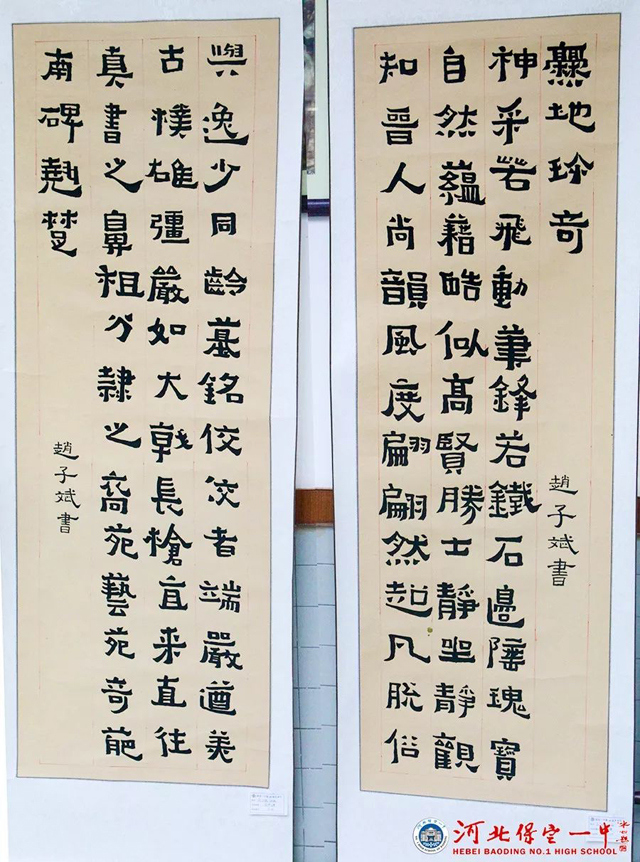 知晉人尚韻風度翩翩然超凡脫俗
自然蘊藉酷似高賢勝士靜坐靜觀
神采若飛動筆鋒若鐵石邊陲瑰寶
爨地珍奇
趙子斌書
與逸少同齡墓銘佼佼者端嚴遒美
古樸雄彊嚴如大戟長槍直来直往
真書之鼻祖分隸之裔苑藝苑奇葩
南碑翹楚
趙子斌書
河北保定一中
HEBEI BAODING NO.1 HIGH SCHOOL